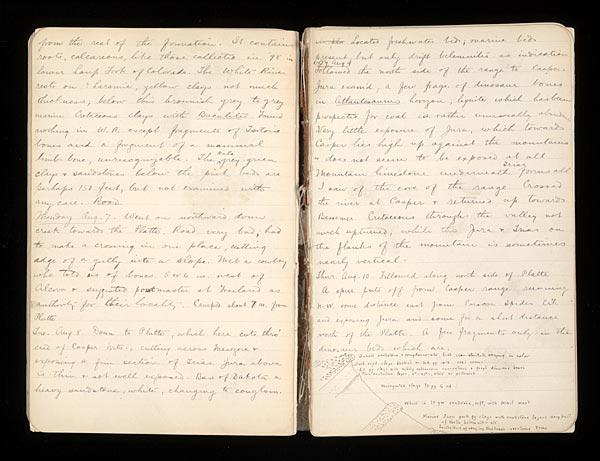 from the rest of the formation. It contains
roots, calcareous, like those collected in '98 in
lower Loup Fork of Colorado. The White River
rests on Laramie, yellow clays not much
thickness, below this brownish grey to grey
marine Cretaceous clays with Baculites. Found
nothing in W.R. except fragments of Testous
bones and a fragment of a mammal
limb bone, unrecognizable. The grey green
clays & sandstones below the pink beds are
perhaps 150 feet, but not examined with
any care. Road
Monday Aug. 7. Went on northward down
creek towards the Platte. Road very bad, had
to make a crossing in one place, cutting
edge of a gully into a slope. Met a cowboy
who told us of bones 5 or 6 m west of
Alcova & suggested postmaster at Freeland as
authority for their locality. Camped about 7 m. from
Platte
Tue. Aug 8. Down to Platte, which here cuts thro'
end of Casper Mts., cutting across Mesozoic &
exposing a fine section of Trias. Jura above
is thin & not well exposed. Base of Dakota a
heavy sandstone, white, changing to conglom.
Located freshwater beds; marine beds
present but only drift belemnites as indication
Wed Aug 9
Followed the north side of the range to Casper.
Jura examd, a few frags of dinosaur bones
in Atlantosaurus horizon, lignite which has been
prospected for coal is rather unusually abund
Very little exposure of Jura, which towards
Casper lies high up against the mountains
& does not seem to be exposed at all.
Trias
Mountain limestone underneath forms all
I saw of the core of the range. Crossed
the river at Casper & returned up towards
Bessemer. Cretaceous through the valley not
well upturned, while the Jura & Trias on
the flanks of the mountain is sometimes
nearly vertical.
Thur. Aug. 10. Followed along north side of Platte
A spur puts off from Casper range running
N.W. some distance east from Poison Spider Crk.
and exposing Jura and some for a short distance
north of the Platte. A few fragments only in the
dinosaur beds which are.
Variegated clays
White
sandstone, soft, with
Marine Jura
clays with sandstone layers very full
of shells, belemnites etc